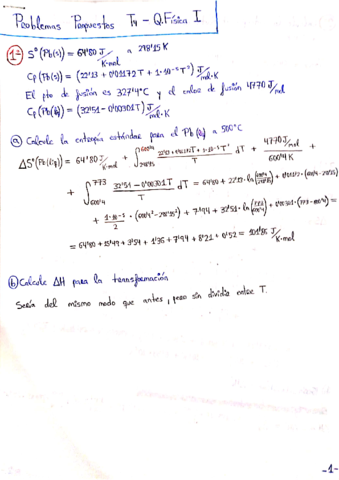 Problemas Propuestos T4 - Q.Física I
1º S°(Pb(s)) = 64'80 J/K·mol a 298'15 K
Cp(Pb(s)) = (22'13 + 0'01172T + 1·10⁻⁵T²) J/mol·K
El pto de fusión es 327'4°C y el calor de fusión 4770 J/mol
Cp(Pb(l)) = (32'51 - 0'00301T) J/mol·K
a) Calcule la entropía estándar para el Pb(l) a 500°C
ΔS°(Pb(l)) = 64'80 J/K·mol + ∫ 298'15 600'4 22'13 + 0'01172T + 1·10⁻⁵T² / T dT + 4770 J/mol / 600'4 K +
+ ∫ 600'4 773 32'51 - 0'00301T / T dT = 64'80 + 22'13·ln(600'4/298'15) + 0'01172·(600'4 - 298'15)
+ 1·10⁻⁵/2 · (600'4² - 298'15²) + 7'94 + 32'51·ln(773/600'4) + 0'00301·(773 - 600'4) =
= 64'80 + 15'49 + 3'54 + 1'36 + 7'94 + 8'21 + 0'52 = 101'86 J/K·mol
b) Calcule ΔH para la transformación
Sería del mismo modo que antes, pero sin dividir entre T.
-1-